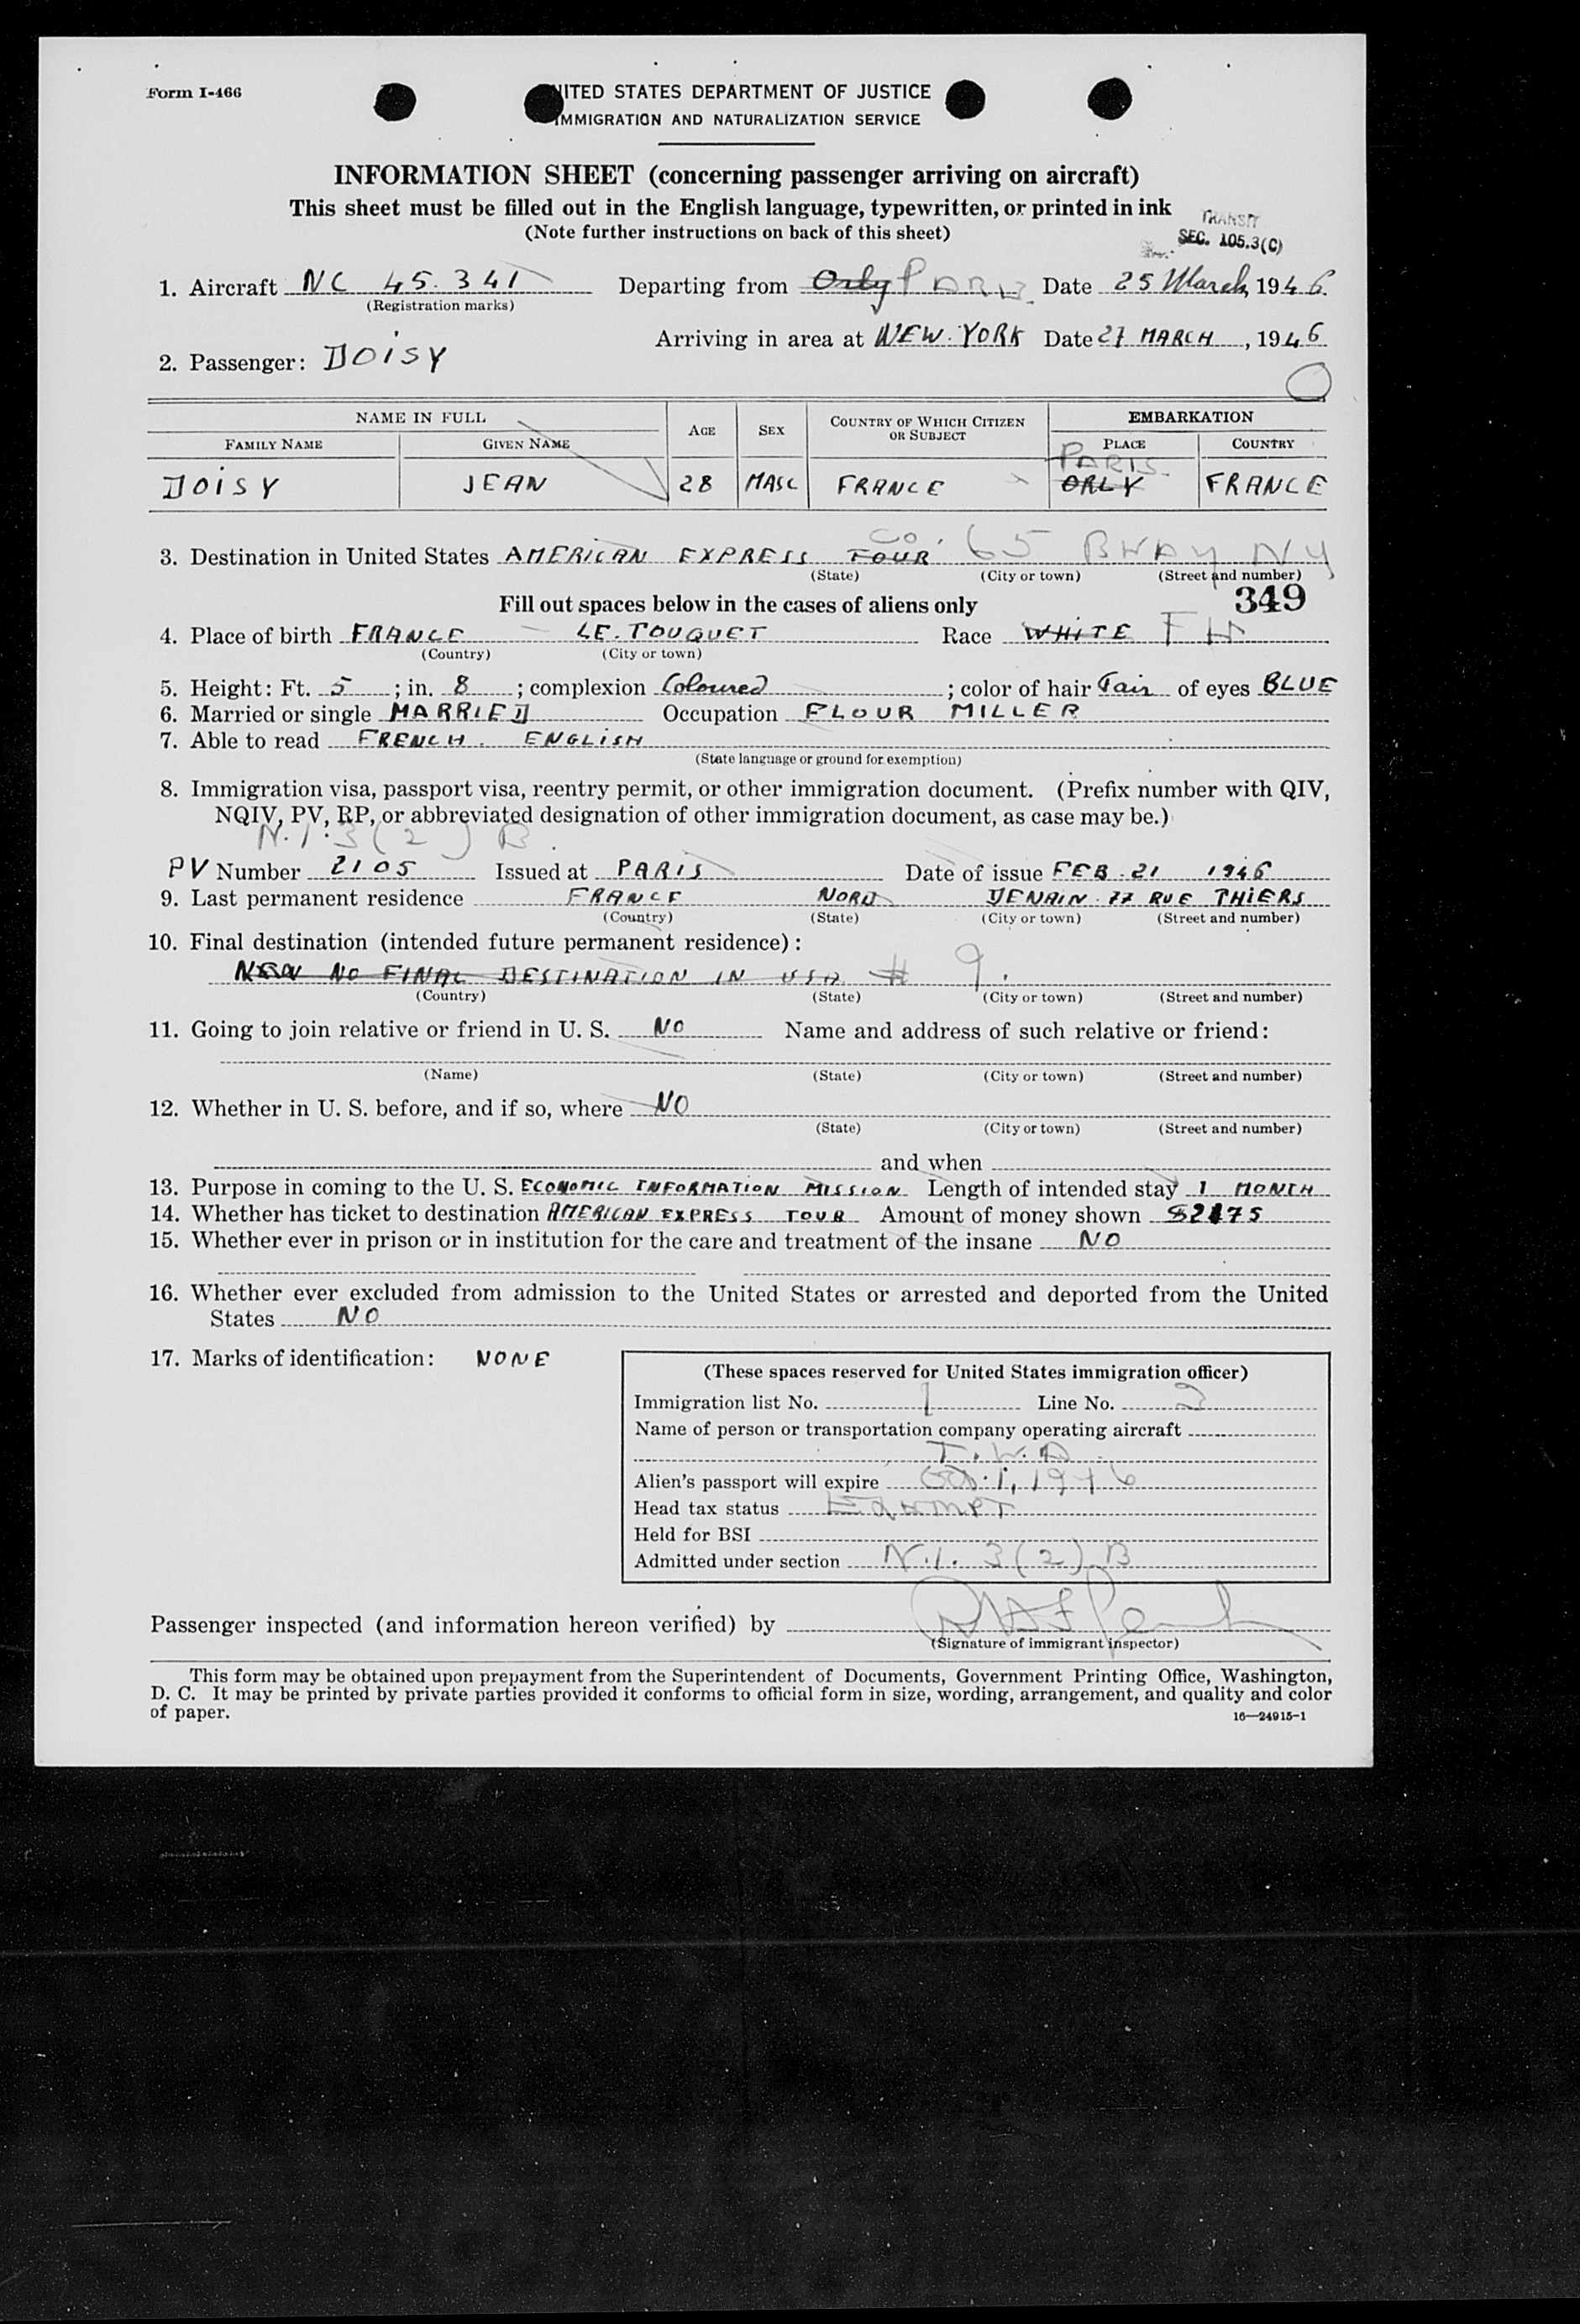 Form I-466
UNITED STATES DEPARTMENT OF JUSTICE
IMMIGRATION AND NATURALIZATION SERVICE
INFORMATION SHEET (concerning passenger arriving on aircraft)
This sheet must be filled out in the English language, typewritten, or printed in ink
(Note further instructions on back of this sheet)
TRANSIT
SEC. 105.3(C)
1. Aircraft NC 45.341 Departing from Orly PARIS Date 25 March, 1946.
(Registration marks)
Arriving in area at NEW.YORK Date 27 MARCH, 1946
2. Passenger: DOISY
NAME IN FULL AGE SEX COUNTRY OF WHICH CITIZEN OR SUBJECT EMBARKATION
FAMILY NAME GIVEN NAME PLACE COUNTRY
PARIS
DOISY JEAN 28 MASC FRANCE ORLY FRANCE
CO. 65 BWAY NY
3. Destination in United States AMERICAN EXPRESS TOUR
(State) (City or town) (Street and number)
Fill out spaces below in the cases of aliens only 349
4. Place of birth FRANCE LE.TOUQUET Race WHITE FH
(Country) (City or town)
5. Height: Ft. 5; in. 8; complexion Coloured; color of hair Fair of eyes BLUE
6. Married or single MARRIED Occupation FLOUR MILLER
7. Able to read FRENCH. ENGLISH
(State language or ground for exemption)
8. Immigration visa, passport visa, reentry permit, or other immigration document. (Prefix number with QIV,
NQIV, PV, RP, or abbreviated designation of other immigration document, as case may be.)
N.I. 3(2) B
PV Number 2105 Issued at PARIS Date of issue FEB.21 1946
9. Last permanent residence FRANCE NORD DENAIN 77 RUE THIERS
(Country) (State) (City or town) (Street and number)
10. Final destination (intended future permanent residence):
NO FINAL DESTINATION IN USA # 9.
(Country) (State) (City or town) (Street and number)
11. Going to join relative or friend in U. S. NO Name and address of such relative or friend:
(Name) (State) (City or town) (Street and number)
12. Whether in U. S. before, and if so, where NO
(State) (City or town) (Street and number)
and when
13. Purpose in coming to the U. S. ECONOMIC INFORMATION MISSION Length of intended stay 1 MONTH
14. Whether has ticket to destination AMERICAN EXPRESS TOUR Amount of money shown
15. Whether ever in prison or in institution for the care and treatment of the insane NO
16. Whether ever excluded from admission to the United States or arrested and deported from the United
States NO
17. Marks of identification: NONE
(These spaces reserved for United States immigration officer)
Immigration list No. 1 Line No. 2
Name of person or transportation company operating aircraft
T.W.A.
Alien's passport will expire Oct. 1, 1946
Head tax status EXEMPT
Held for BSI
Admitted under section N.I. 3(2) B
Passenger inspected (and information hereon verified) by
(Signature of immigrant inspector)
This form may be obtained upon prepayment from the Superintendent of Documents, Government Printing Office, Washington,
D. C. It may be printed by private parties provided it conforms to official form in size, wording, arrangement, and quality and color
of paper.
16—24915-1